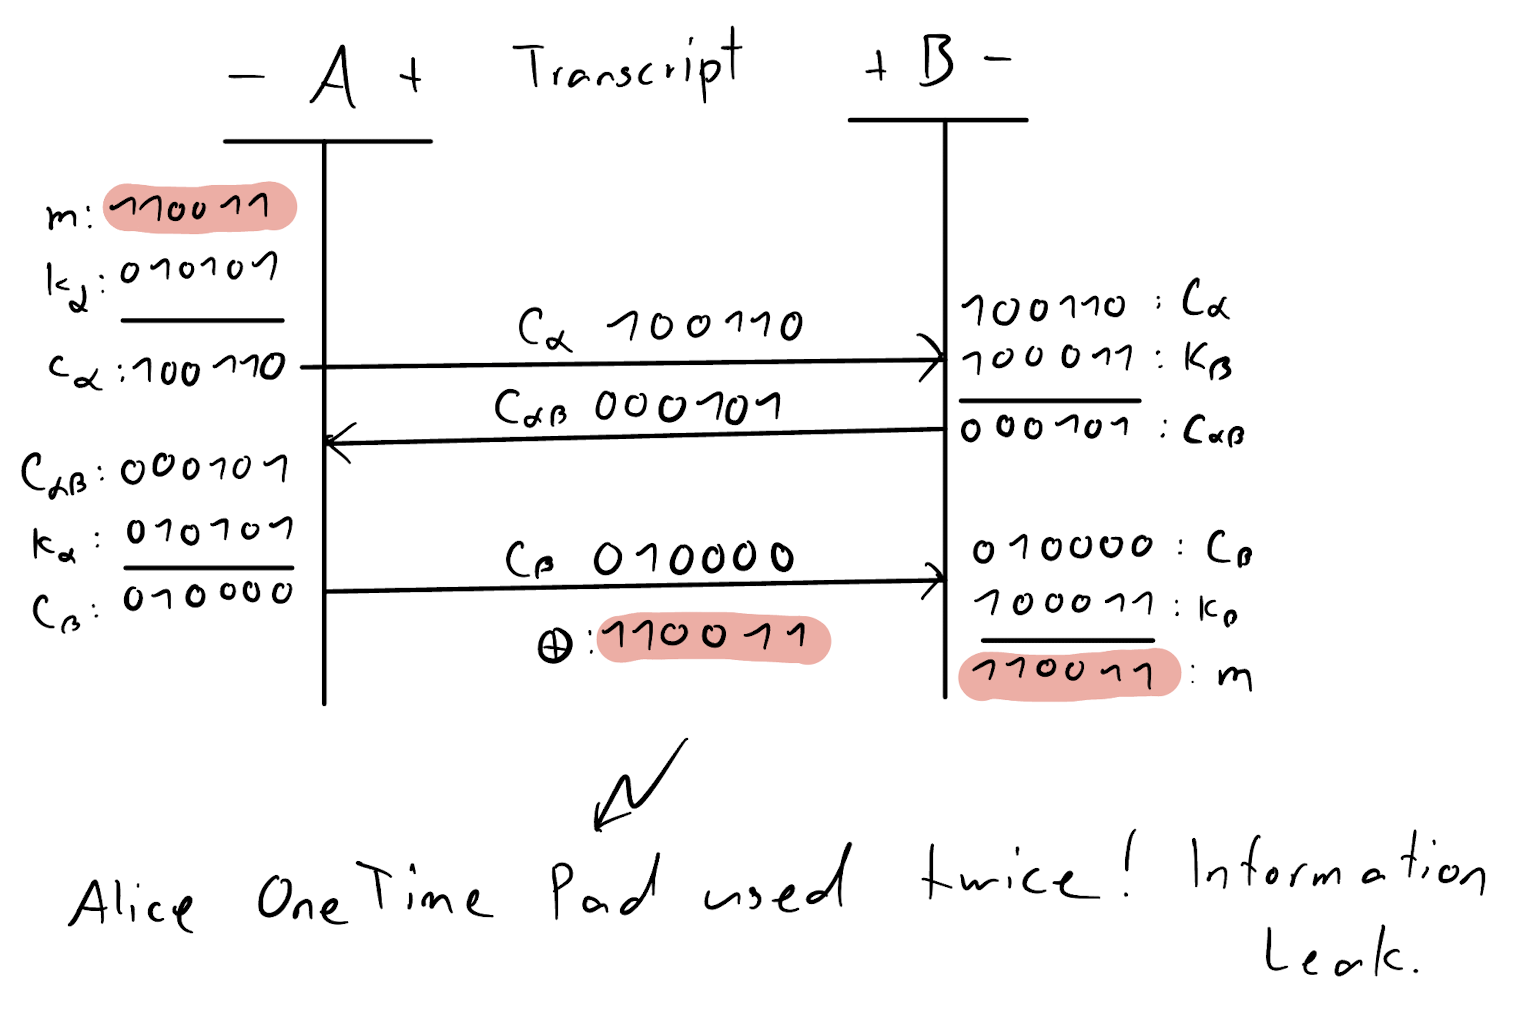 - A + Transcript + B -
m: 110011
kα: 010101
cα: 100110
Cα 100110
100110 : Cα
100011 : Kβ
000101 : Cαβ
Cαβ 000101
Cαβ: 000101
kα: 010101
Cβ: 010000
Cβ 010000
010000 : Cβ
100011 : kβ
110011 : m
⊕: 110011
Alice One Time Pad used twice! Information
Leak.